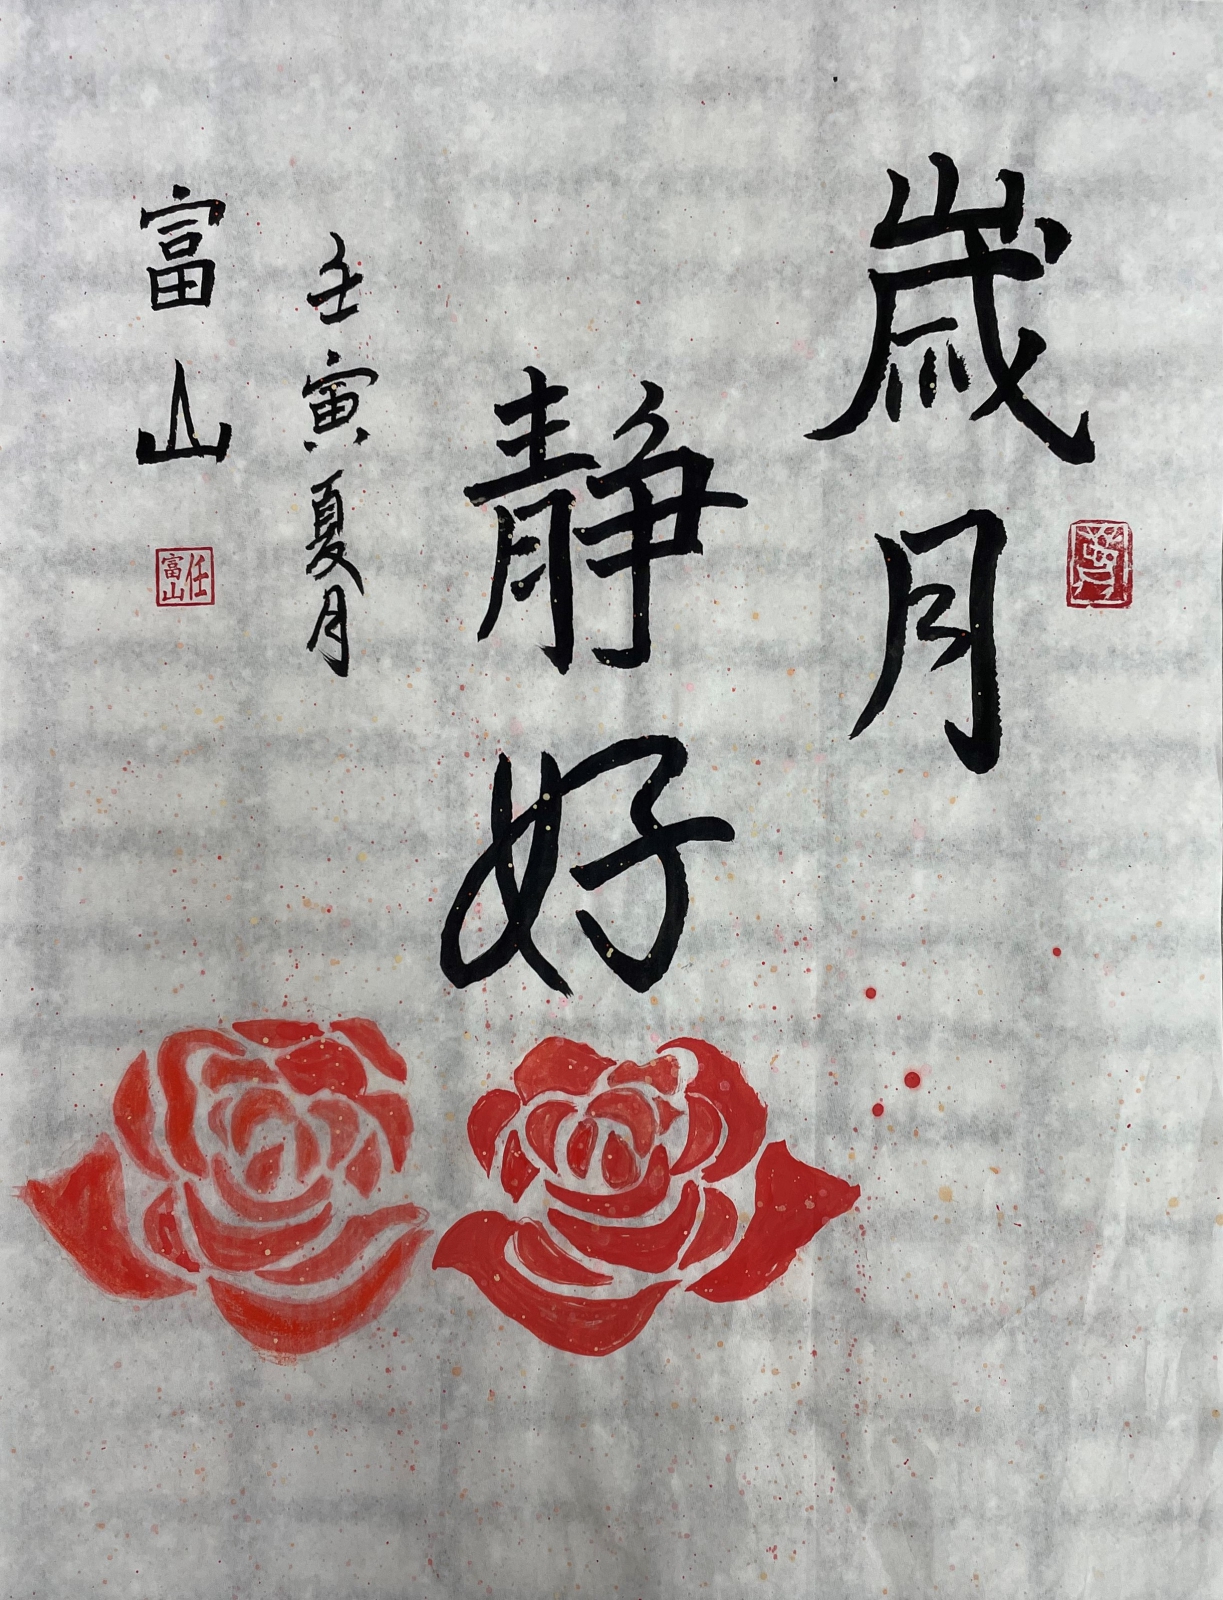 歲月
靜好
壬寅夏月
富山
任富山